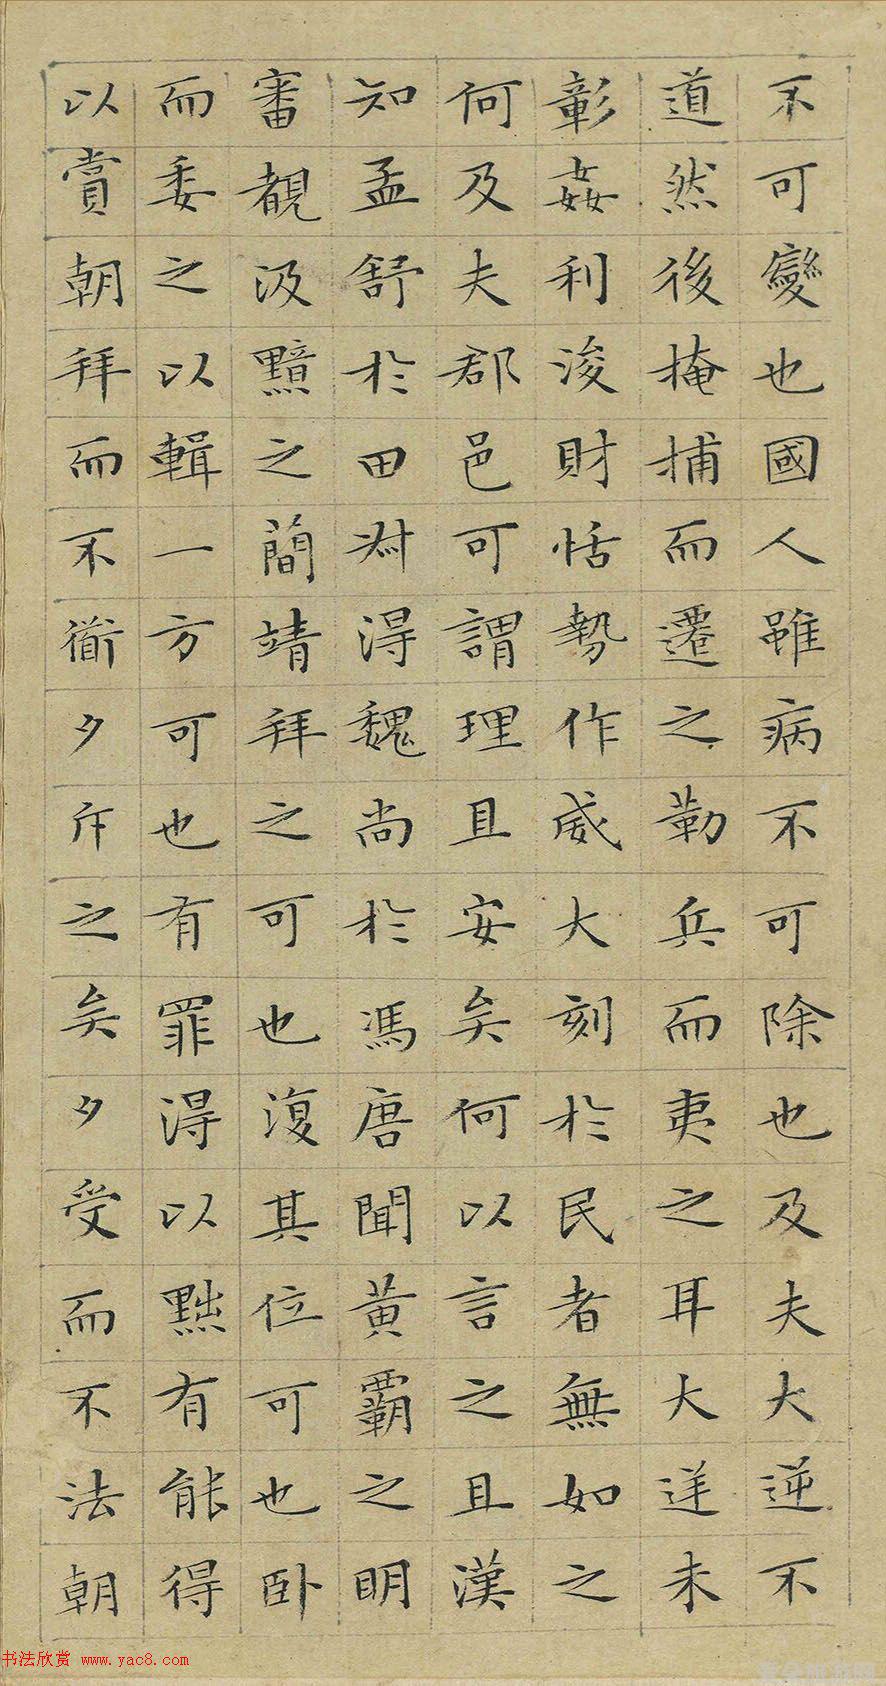 不可變也國人雖病不可除也及夫大逆不
道然後掩捕而遷之勒兵而夷之耳大逆未
彰姦利浚財恬勢作威大刻於民者無如之
何及夫郡邑可謂理且安矣何以言之且漢
知孟舒於田叔得魏尚於馮唐聞黃覇之明
審覩汲黯之簡靖拜之可也復其位可也卧
而委之以輯一方可也有罪得以黜有能得
以賞朝拜而不衜夕斥之矣夕受而不法朝
书法欣赏 www.yac8.com